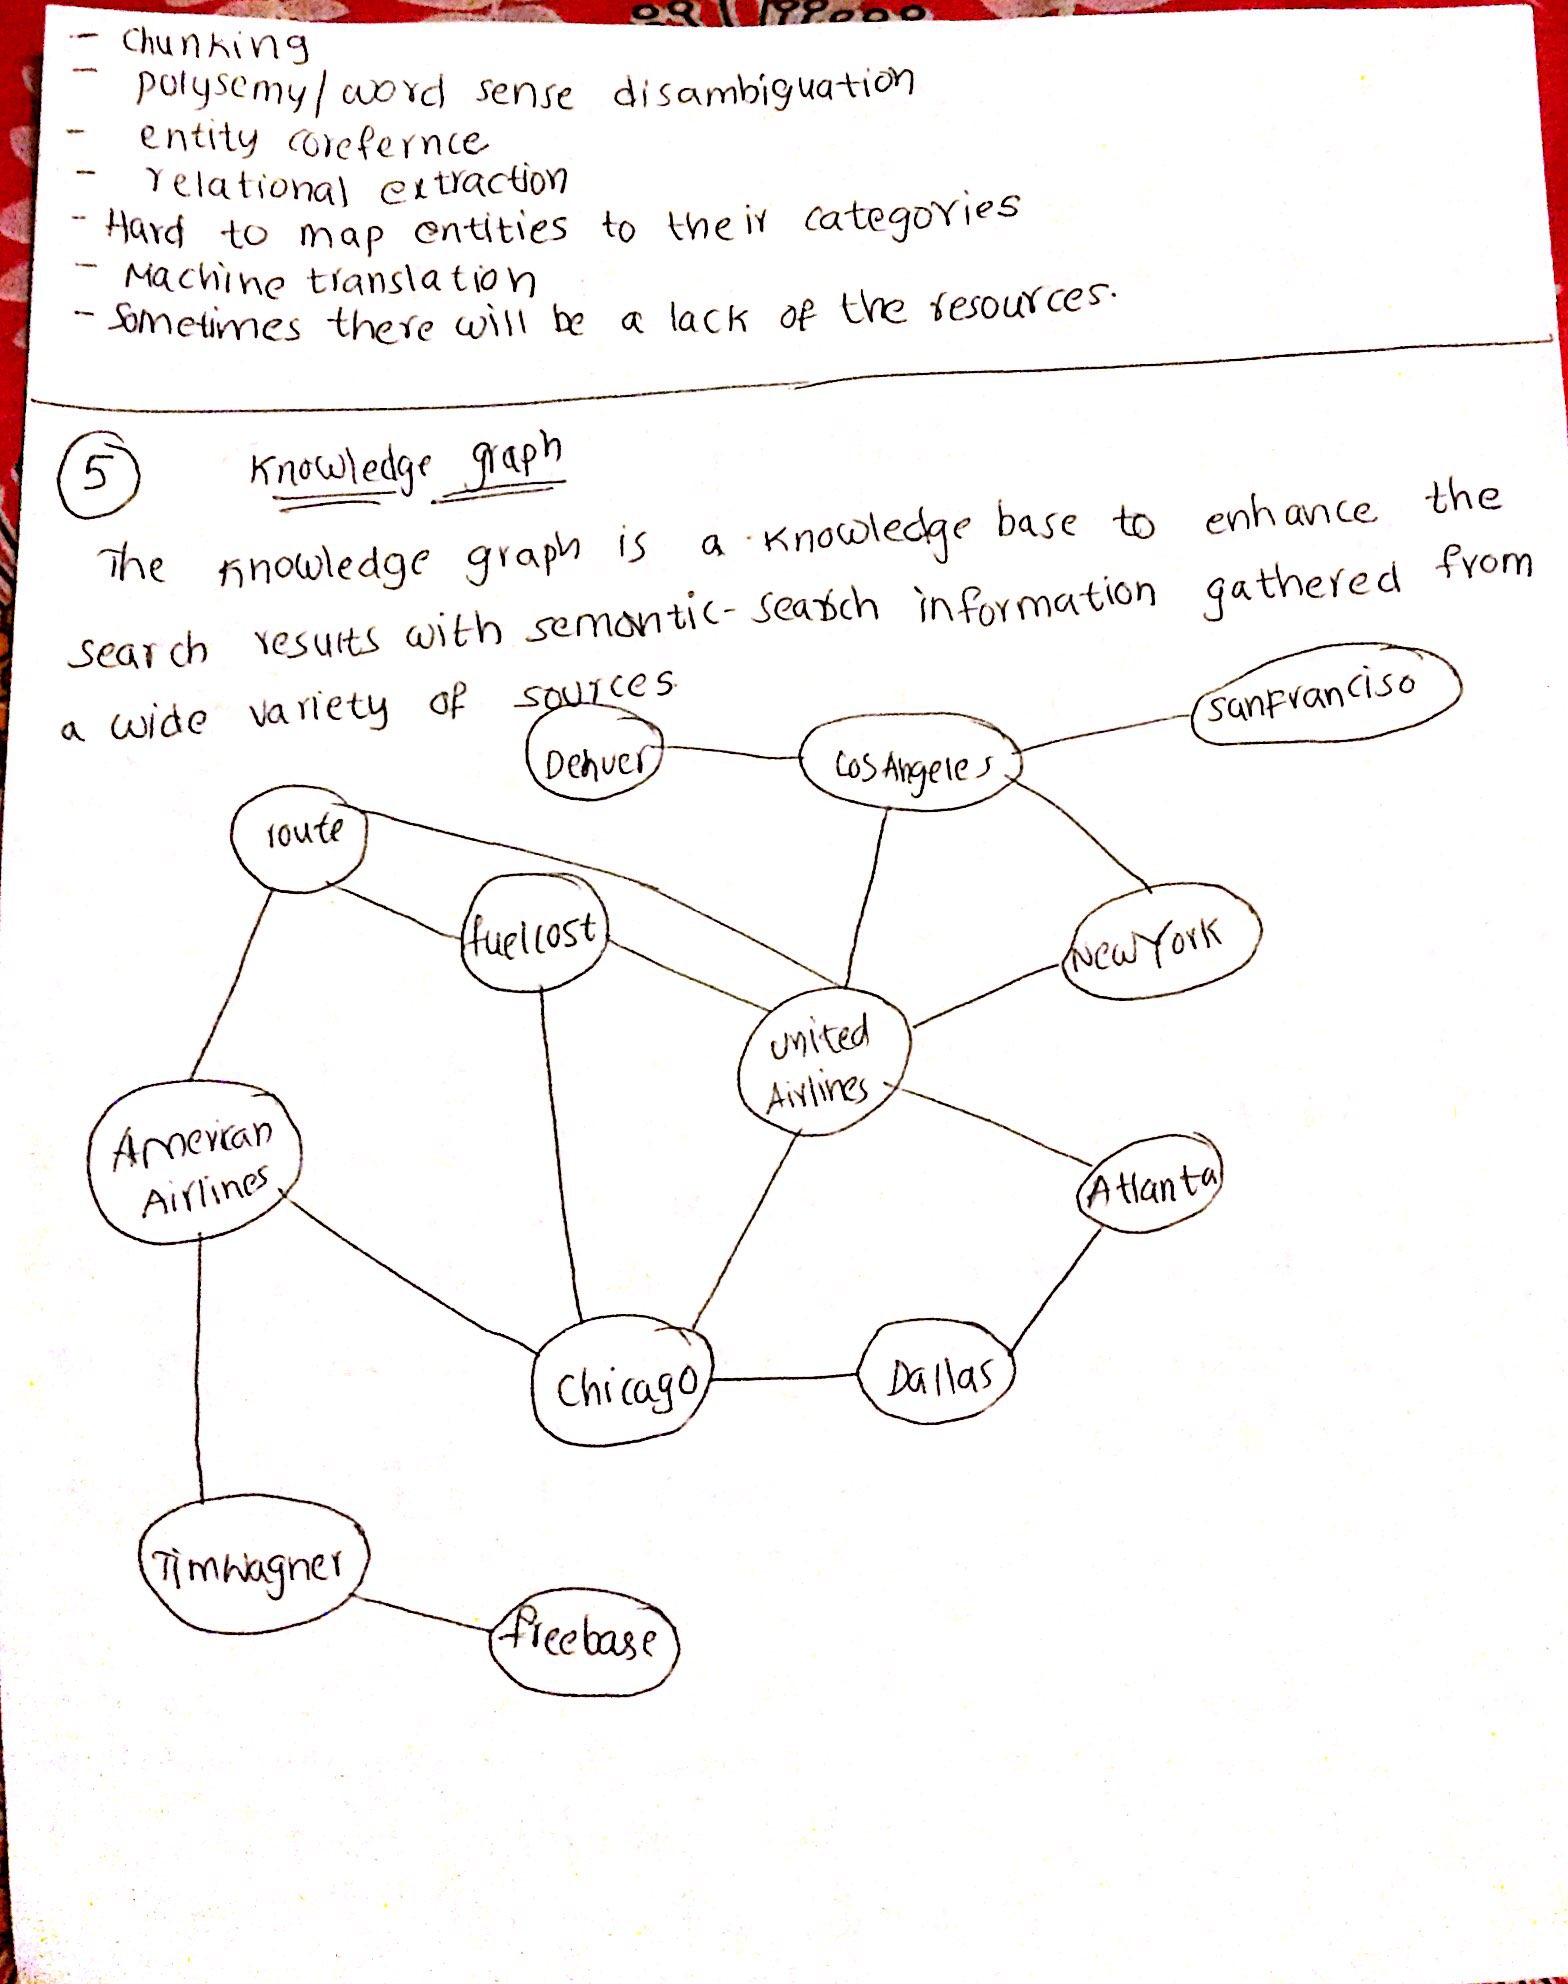 - Chunking
- polysemy/word sense disambiguation
- entity corefernce
- relational extraction
- Hard to map entities to their categories
- Machine translation
- Sometimes there will be a lack of the resources.
5 Knowledge graph
The knowledge graph is a knowledge base to enhance the
search results with semantic-search information gathered from
a wide variety of sources
SanFranciso
Denver
LosAngeles
route
fuelcost
NewYork
United
Airlines
American
Airlines
Atlanta
Chicago
Dallas
TimWagner
freebase